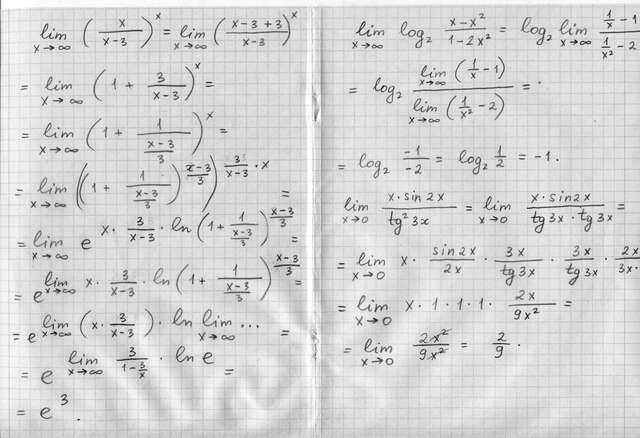 lim x→∞ (x/(x-3))^x = lim x→∞ ((x-3+3)/(x-3))^x
= lim x→∞ (1 + 3/(x-3))^x =
= lim x→∞ (1 + 1/((x-3)/3))^x =
= lim x→∞ ((1 + 1/((x-3)/3))^((x-3)/3))^(3/(x-3) · x) =
= lim x→∞ e^(x · 3/(x-3) · ln(1 + 1/((x-3)/3))^((x-3)/3)) =
= e^(lim x→∞ x · 3/(x-3) · ln(1 + 1/((x-3)/3))^((x-3)/3)) =
= e^(lim x→∞ (x · 3/(x-3)) · ln lim x→∞ ...) =
= e^(lim x→∞ 3/(1-3/x) · ln e) =
= e^3.
lim x→∞ log₂ (x-x²)/(1-2x²) = log₂ lim x→∞ (1/x - 1)/(1/x² - 2)
= log₂ (lim x→∞ (1/x - 1))/(lim x→∞ (1/x² - 2)) = ·
= log₂ (-1)/(-2) = log₂ 1/2 = -1.
lim x→0 (x·sin2x)/(tg²3x) = lim x→0 (x·sin2x)/(tg3x·tg3x) =
= lim x→0 x · (sin2x)/(2x) · (3x)/(tg3x) · (3x)/(tg3x) · (2x)/(3x·
= lim x→0 x · 1 · 1 · 1 · (2x)/(9x²) =
= lim x→0 (2x²)/(9x²) = 2/9.